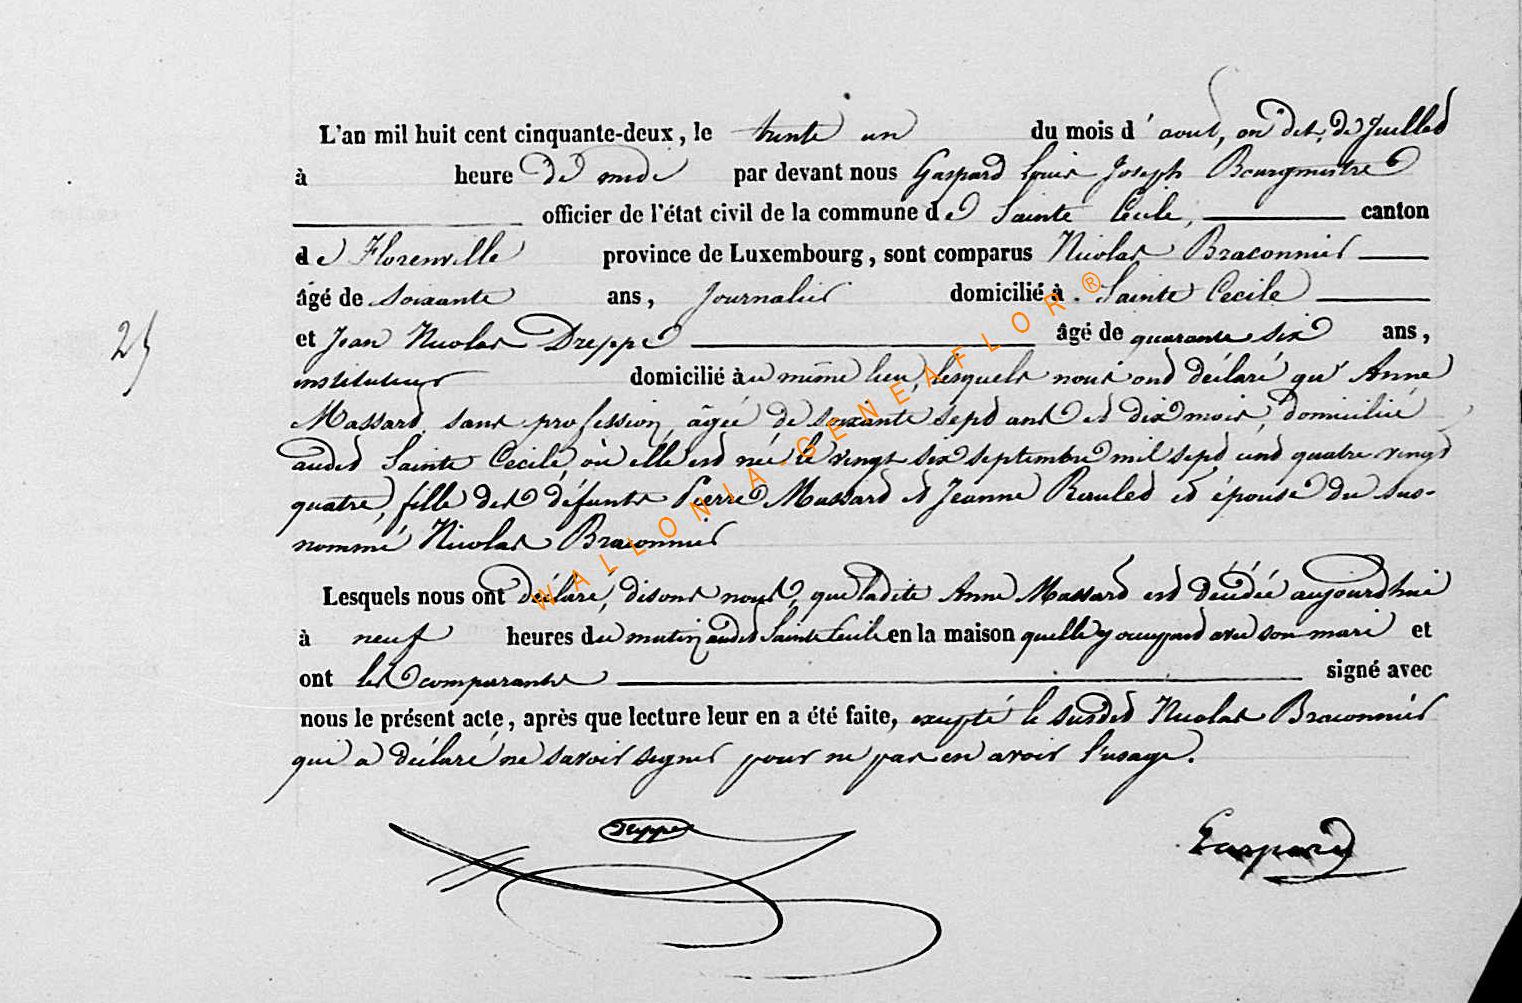 L'an mil huit cent cinquante-deux, le trente un du mois d'aout, on dit, de Juillet
à heure de midi par devant nous Gaspard Louis Joseph Bourgmestre
officier de l'état civil de la commune de Sainte Cecile, canton
de Florenville province de Luxembourg, sont comparus Nicolas Braconnier
âgé de soixante ans, Journalier domicilié à Sainte Cecile
et Jean Nicolas Dreppe âgé de quarante six ans,
instituteur domicilié au même lieu, lesquels nous ont déclaré qu' Anne
25
Massard, sans profession, âgée de soixante sept ans et dix mois, domiciliée
audit Sainte Cecile, où elle est née le vingt six septembre mil sept cent quatre vingt
quatre, fille des défunts Pierre Massard et Jeanne Roulet et épouse du sus-
nommé Nicolas Braconnier
Lesquels nous ont déclaré, disons nous, que ladite Anne Massard est décédée aujourd'hui
à neuf heures du matin audit Sainte Cecile en la maison quelle y occupait avec son mari et
ont les comparants signé avec
nous le présent acte, après que lecture leur en a été faite, excepté le susdit Nicolas Braconnier
qui a déclaré ne savoir signer pour ne pas en avoir l'usage.
Dreppe Gaspard
WALLONIA-GENEAFLOR®